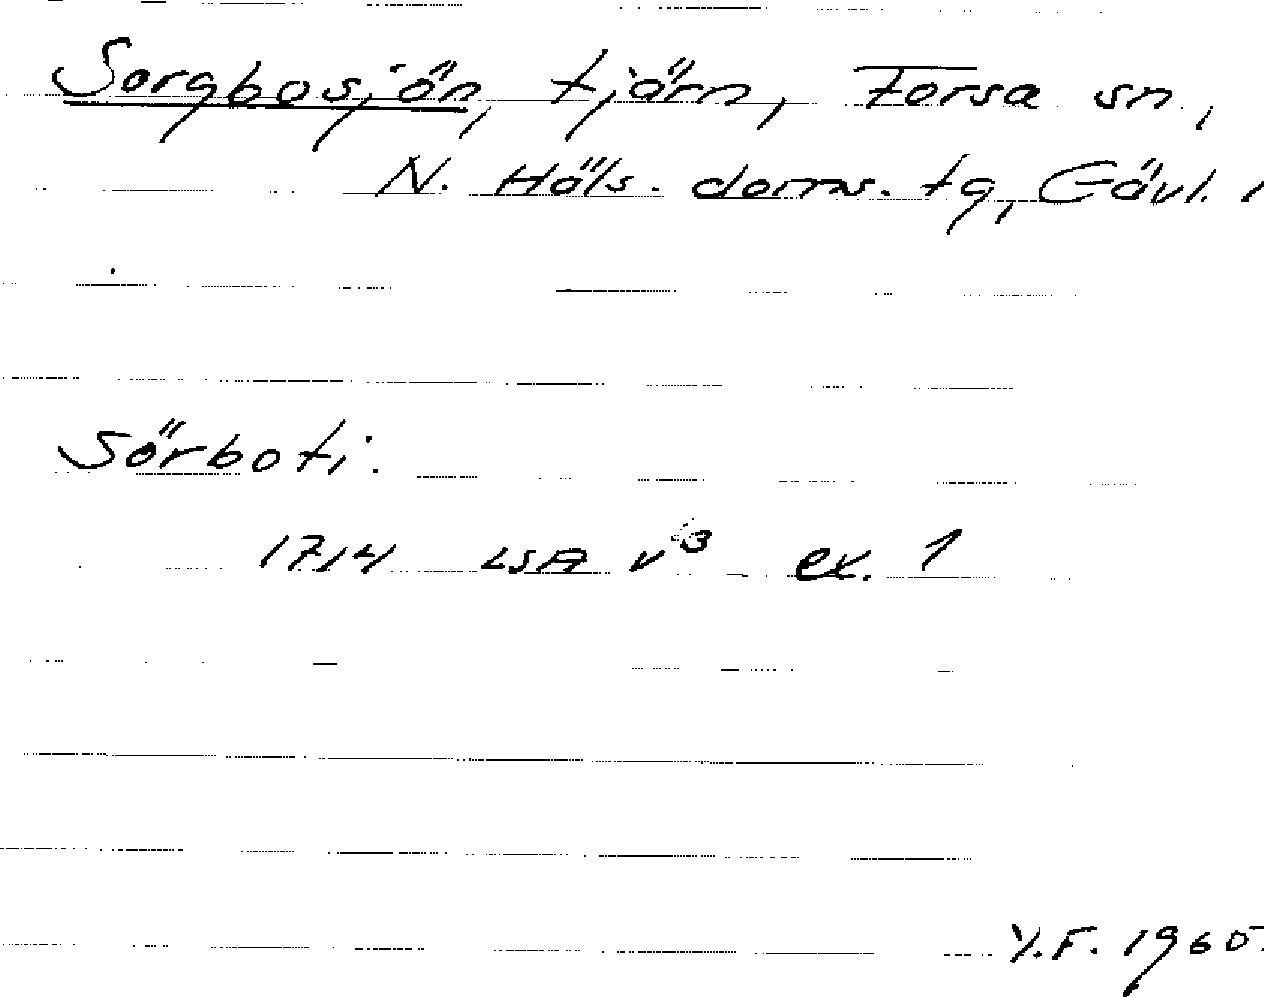 Sorgbosjön, tjärn, Forsa sn.,
N. Häls. doms. tg, Gävl. l
Sörbo ti:
1714 LSA v 3 ex. 1
Y.F. 1960.